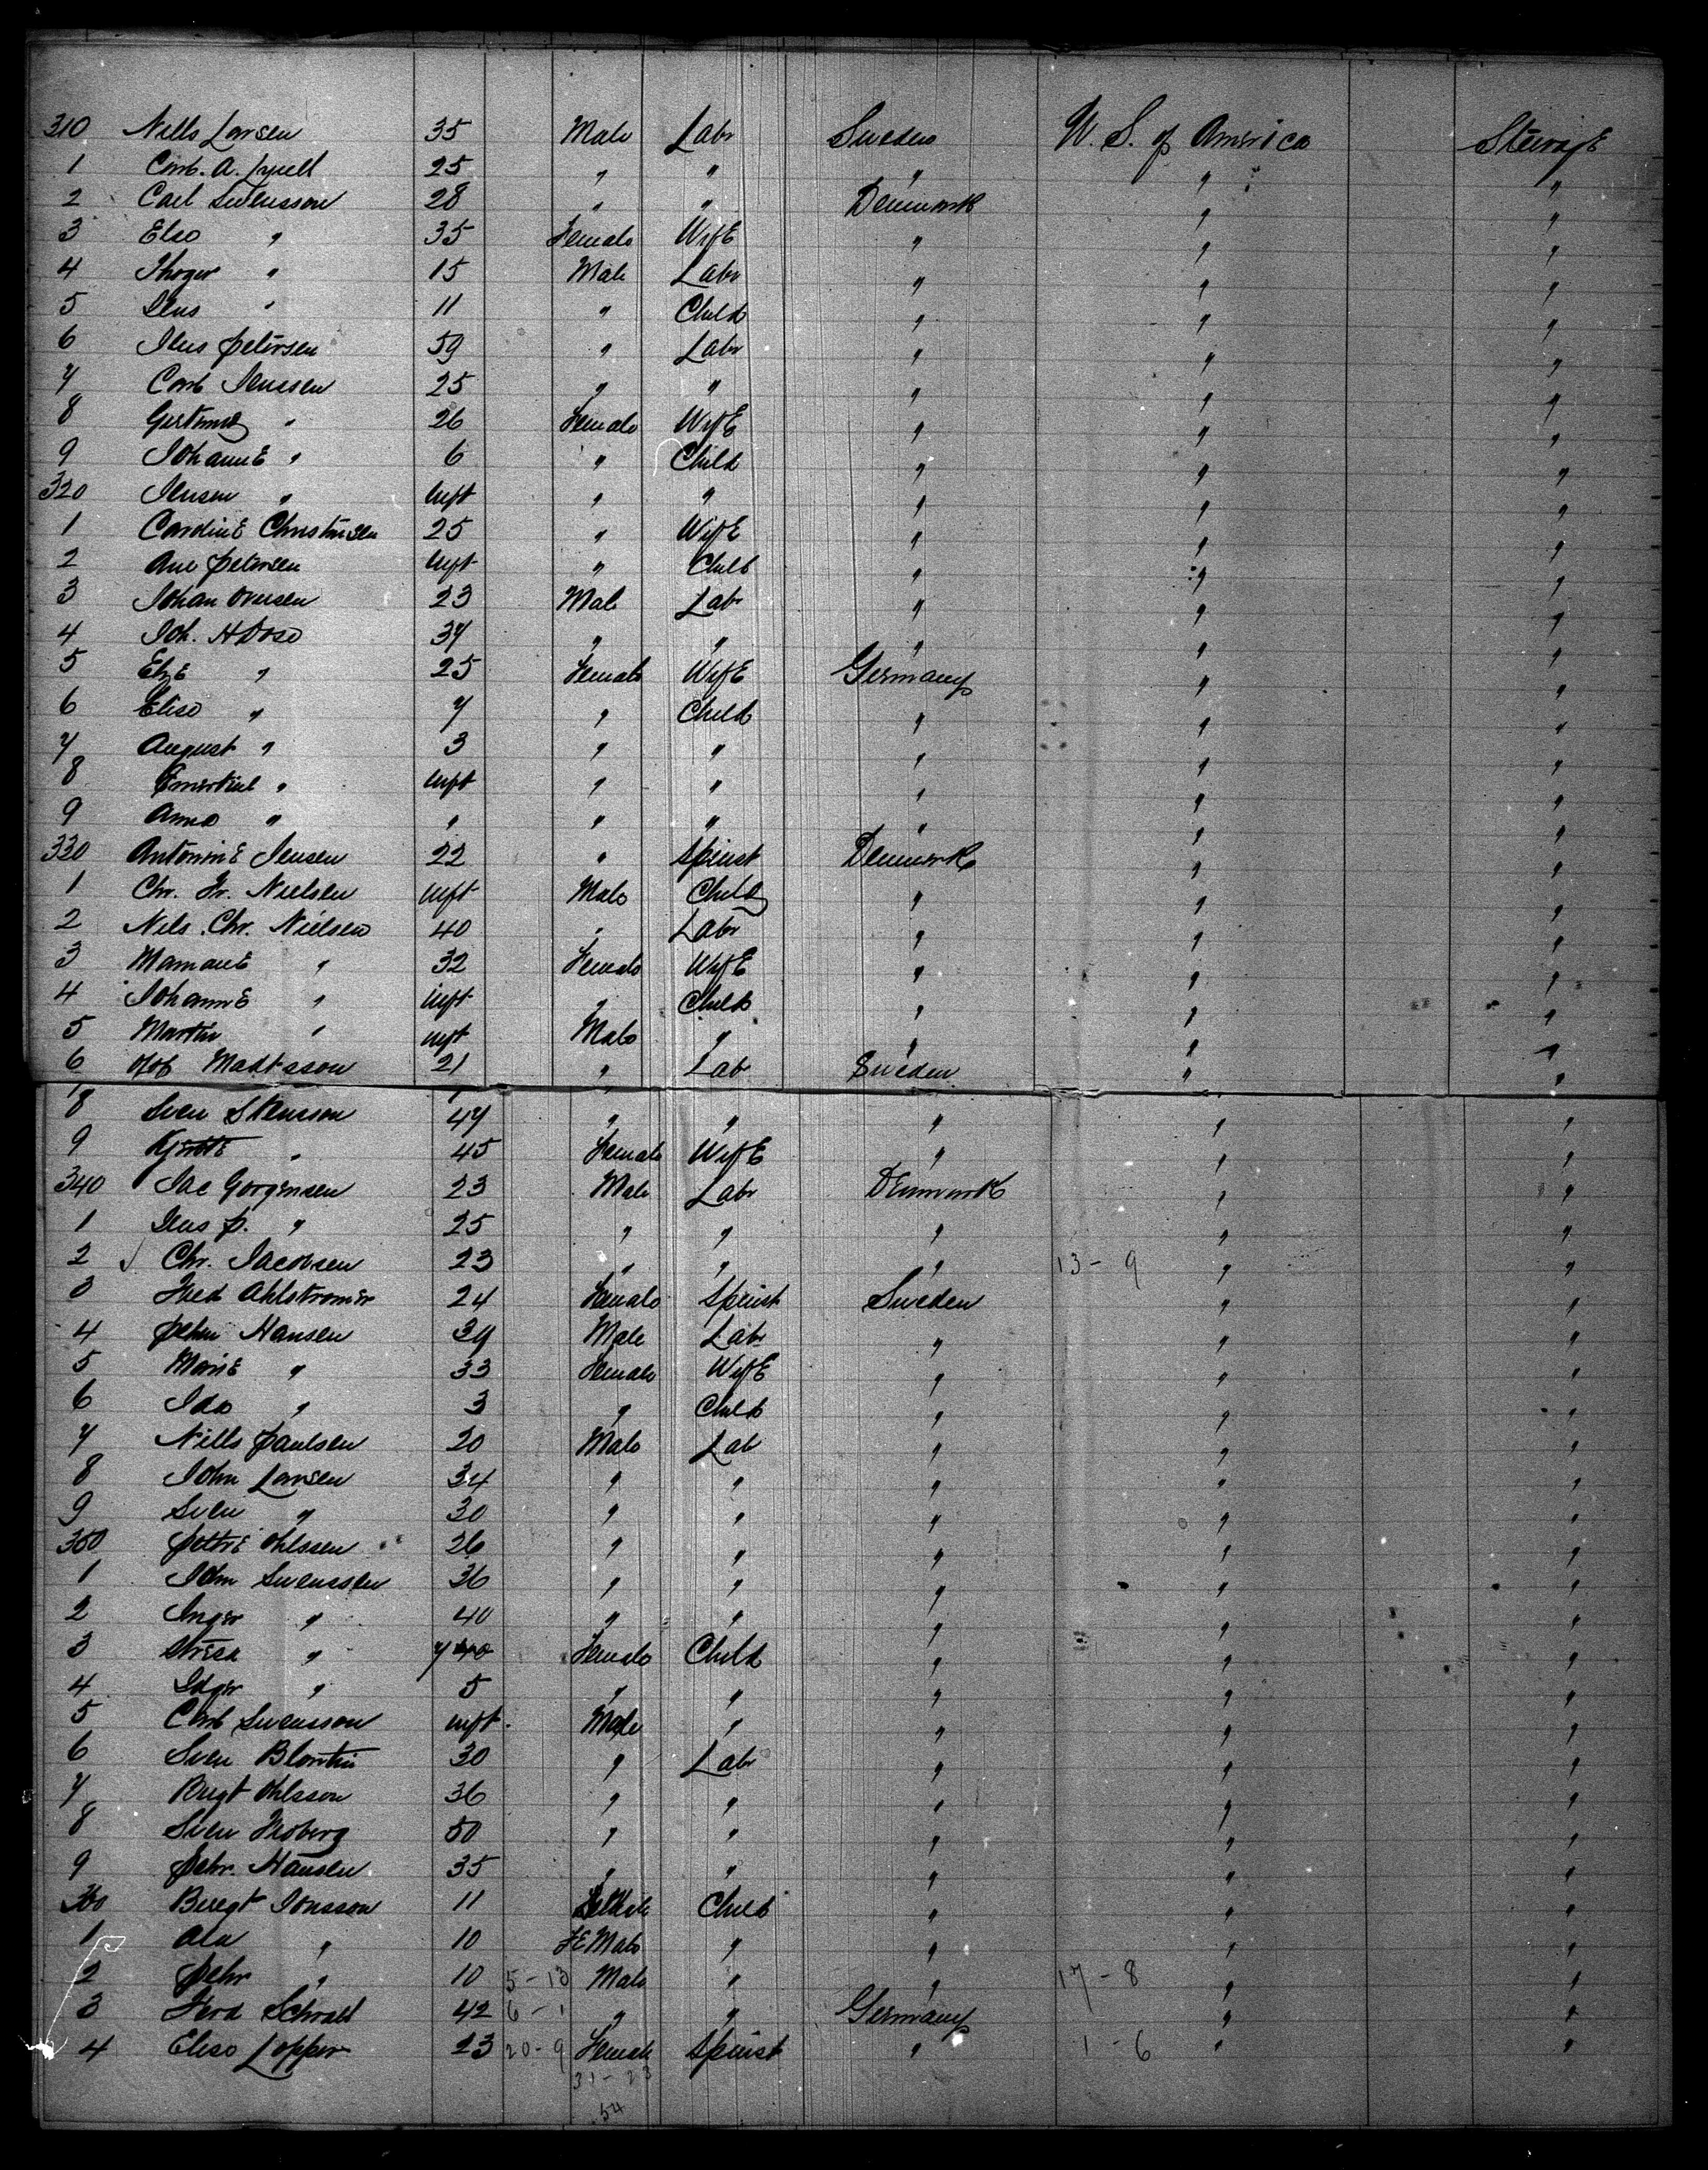 310 Nells Larsen 35 Male Labr Sweden U. S. of America Steerage
1 Carl. A. Lyzell 25 " " " " "
2 Carl Swensson 28 " " Denmark " "
3 Else " 35 Female Wife " " "
4 Thoger " 15 Male Labr " " "
5 Jens " 11 " Child " " "
6 Jens Petersen 59 " Labr " " "
7 Carl Jenssen 25 " " " " "
8 Gertrud " 26 Female Wife " " "
9 Johanne " 6 " Child " " "
320 Jensen " inft " " " " "
1 Caroline Christensen 25 " Wife " " "
2 Ane Petersen inft " Child " " "
3 Johan Oversen 23 Male Labr " " "
4 Joh. H Dose 37 " " " " "
5 Elze " 25 Female Wife Germany " "
6 Elise " 7 " Child " " "
7 August " 3 " " " " "
8 " inft " " " " "
9 Anna " " " " " " "
330 Antonine Jensen 22 " Spinst Denmark " "
1 Chr. Fr. Nielsen inft Male Child " " "
2 Nils. Chr. Nielsen 40 " Labr " " "
3 Mariane " 32 Female Wife " " "
4 Johanne " inft " Child " " "
5 Martin " inft Male " " " "
6 Olof Madtsson 21 " Lab Sweden " "
8 Sven Stensson 47 " " " " "
9 " 45 Female Wife " " "
340 Jac Gorgensen 23 Male Labr Denmark " "
1 Jens P. " 25 " " " " "
2 Chr. Jacobsen 23 " " " 13-9 " "
3 Hed Ahlstromer 24 Female Spinst Sweden " "
4 Pehr Hansen 37 Male Labr " " "
5 Marie " 33 Female Wife " " "
6 Ida " 3 " Child " " "
7 Nills Paulsen 20 Male Lab " " "
8 John Larsen 34 " " " " "
9 Sven " 30 " " " " "
350 Pettre Ohlssen 26 " " " " "
1 John Swenssen 36 " " " " "
2 Inger " 40 " " " " "
3 " 7 Female Child " " "
4 Edger " 5 " " " " "
5 Carl Swensson inft. Male " " " "
6 Sven Blontin 30 " Labr " " "
7 Bengt Ohlsson 36 " " " " "
8 Sven Froberg 50 " " " " "
9 Pehr. Hansen 35 " " " " "
360 Bengt Jonsson 11 Child " " "
1 Ola " 10 Fe Male " " " "
2 Pehr " 10 5-13 Male " " 17-8 " "
3 Ferd Schrall 42 6-1 " " Germany " "
4 Elise Lopper 23 20-9 Female Spinst " 1-6 " "
31-23
54